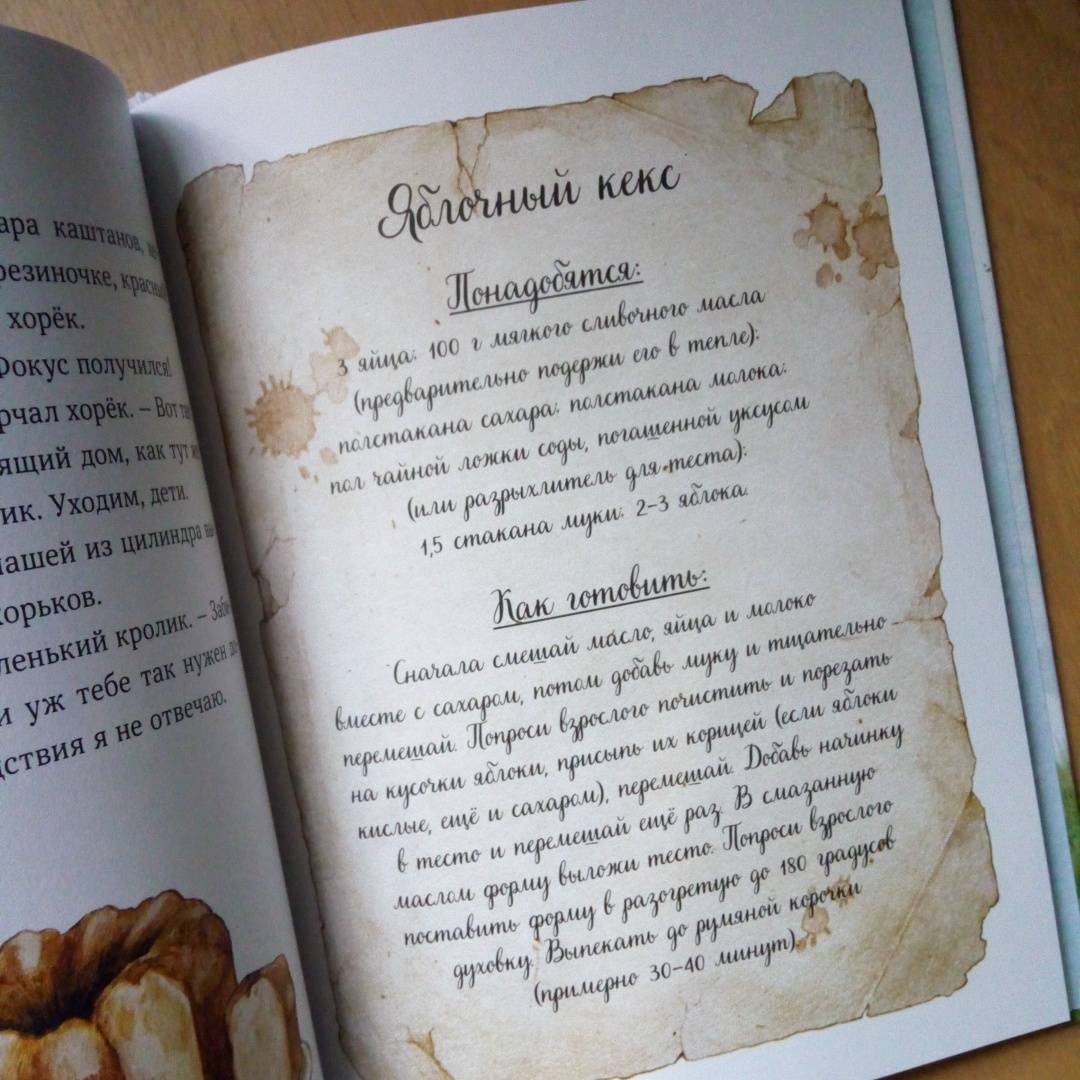 каштанов,
резиночке,
хорёк.
Фокус получился!
хорёк. – Вот
дом, как тут
Уходим, дети.
из цилиндра
хорьков.
кролик. –
и уж тебе так нужен
я не отвечаю.
Яблочный кекс
Понадобятся:
3 яйца; 100 г мягкого сливочного масла
(предварительно подержи его в тепле);
полстакана сахара; полстакана молока;
пол чайной ложки соды, погашенной уксусом
(или разрыхлитель для теста);
1,5 стакана муки; 2–3 яблока.
Как готовить:
Сначала смешай масло, яйца и молоко
вместе с сахаром, потом добавь муку и тщательно
перемешай. Попроси взрослого почистить и порезать
на кусочки яблоки, присыпь их корицей (если яблоки
кислые, ещё и сахаром), перемешай. Добавь начинку
в тесто и перемешай ещё раз. В смазанную
маслом форму выложи тесто. Попроси взрослого
поставить форму в разогретую до 180 градусов
духовку. Выпекать до румяной корочки
(примерно 30–40 минут).